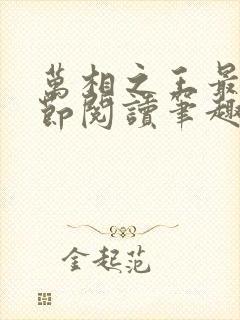 萬相之王最
節閱讀筆趣
金起范